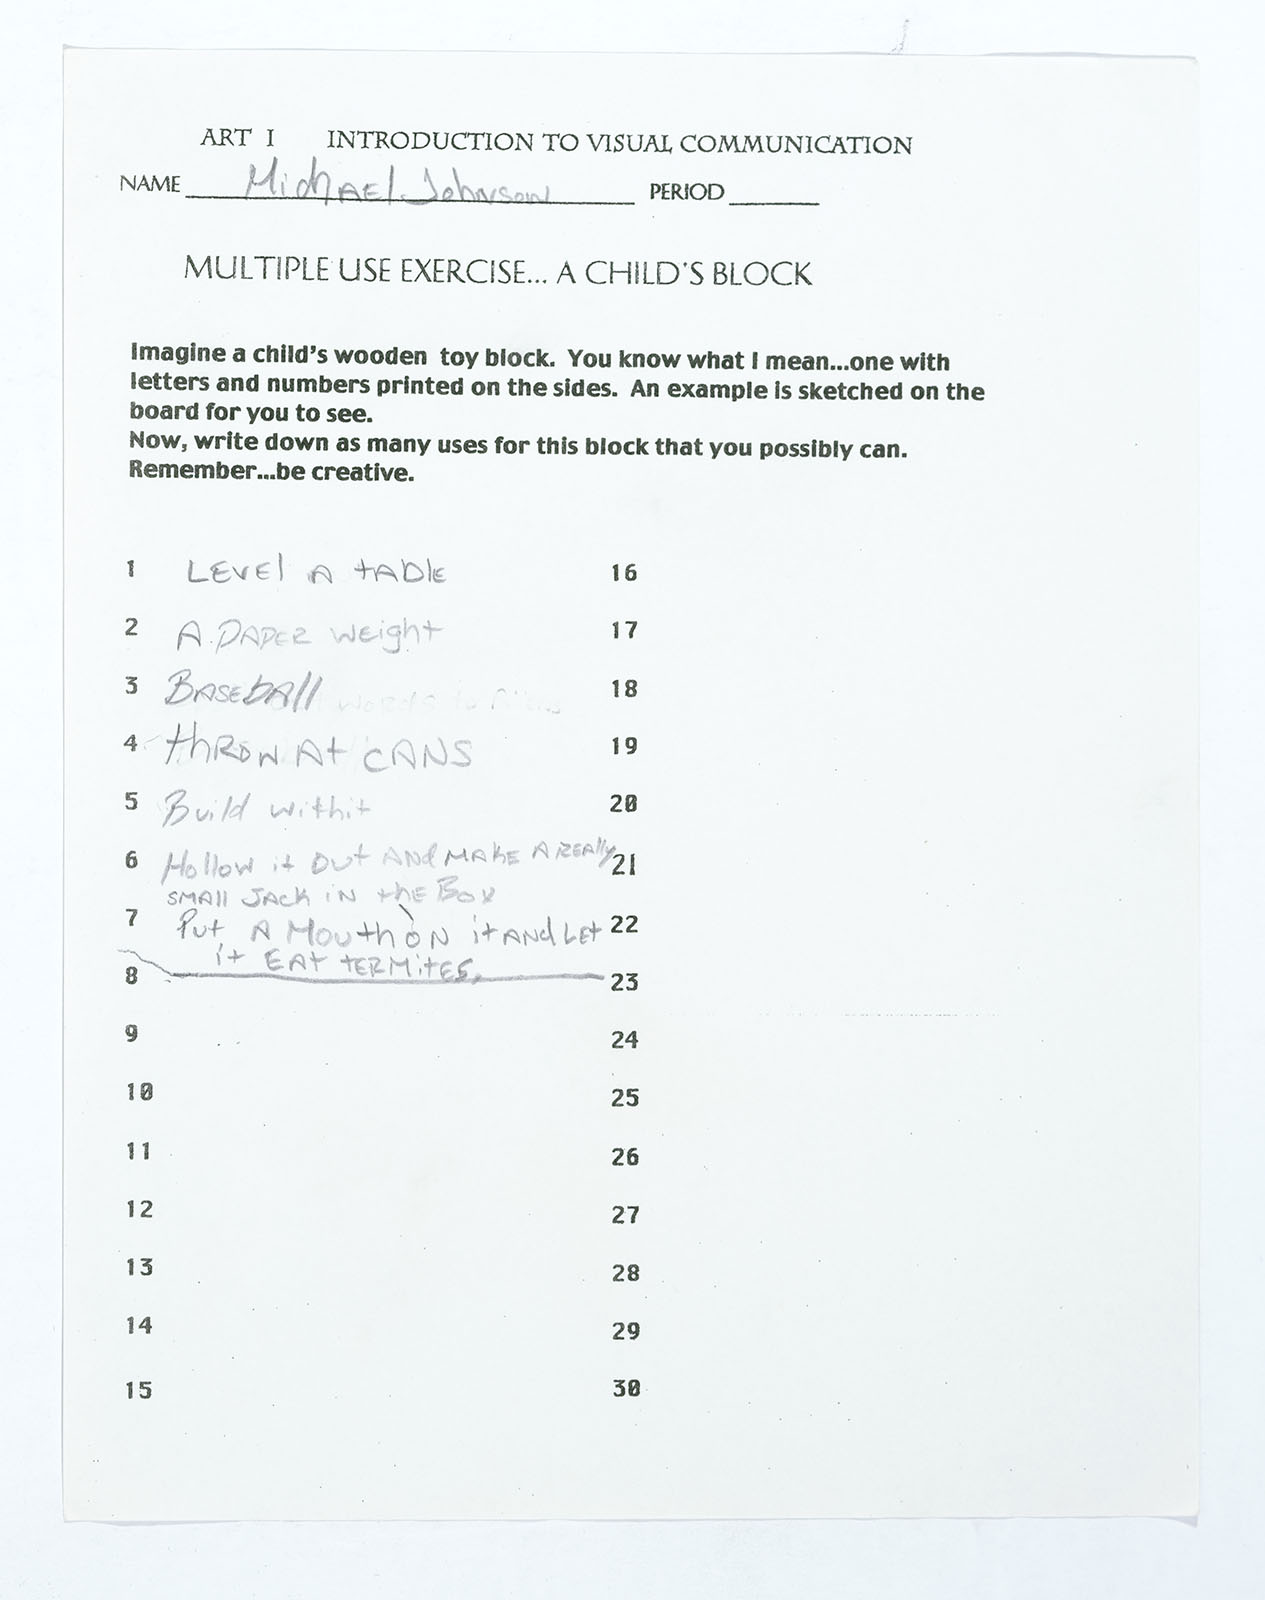 ART I INTRODUCTION TO VISUAL COMMUNICATION
NAME Michael Johnson PERIOD
MULTIPLE USE EXERCISE... A CHILD'S BLOCK
Imagine a child's wooden toy block. You know what I mean...one with
letters and numbers printed on the sides. An example is sketched on the
board for you to see.
Now, write down as many uses for this block that you possibly can.
Remember...be creative.
1 LEVEl A tABlE
2 A PAPER WEight
3 BASEbAll
4 thROW At CANS
5 Build withit
6 Hollow it Out AND MAKE A REAlly
SMAll JACK iN thE Box
7 Put A Mouth ON it AND LEt
it EAt tERMitES.
8
9
10
11
12
13
14
15
16
17
18
19
20
21
22
23
24
25
26
27
28
29
30